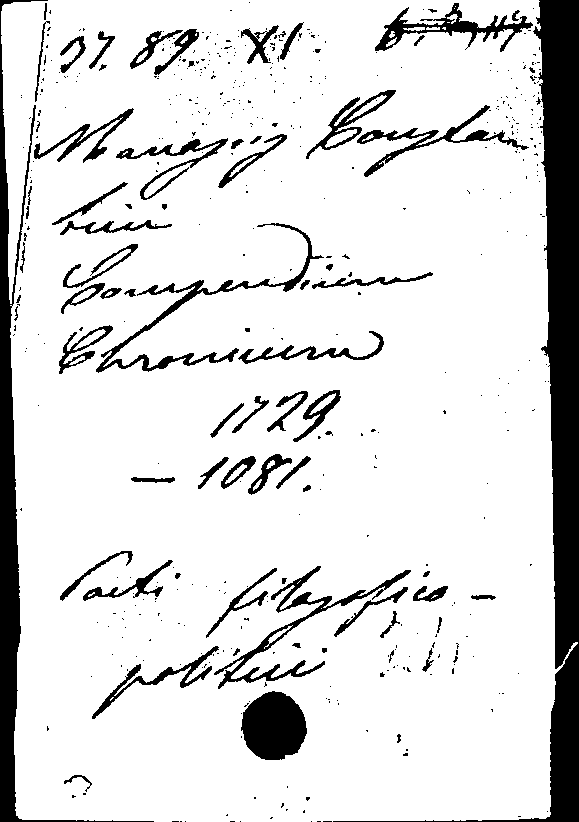 37. 89. XI.
Manassis Constan
tini
Compendium
Chronicum
1729.
— 1081.
Poeti filosofico-
politici